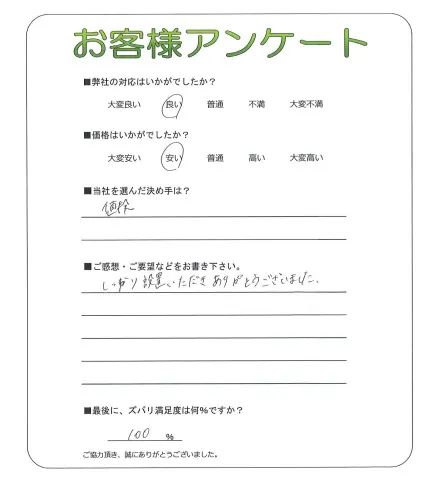 お客様アンケート
■弊社の対応はいかがでしたか？
大変良い 良い 普通 不満 大変不満
■価格はいかがでしたか？
大変安い 安い 普通 高い 大変高い
■当社を選んだ決め手は？
価格
■ご感想・ご要望などをお書き下さい。
しっかり設置いただきありがとうございました。
■最後に、ズバリ満足度は何％ですか？
100 %
ご協力頂き、誠にありがとうございました。